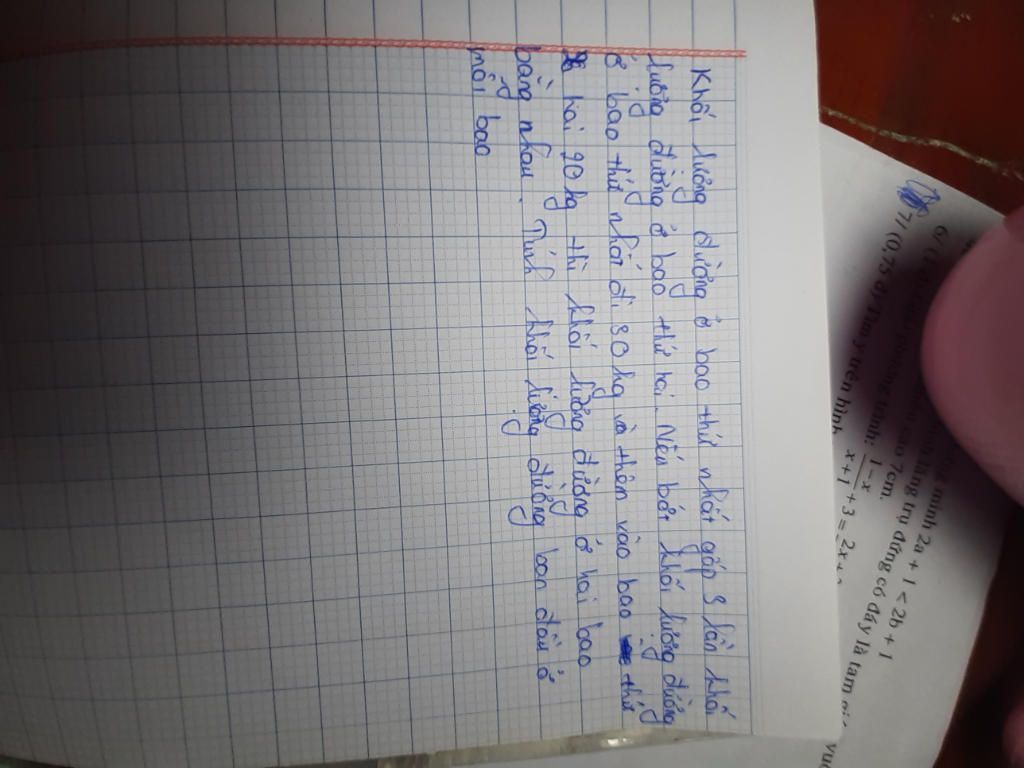 Khối lượng đường ở bao thứ nhất gấp 3 lần khối
lượng đường ở bao thứ hai. Nếu bớt khối lượng đường
ở bao thứ nhất đi 30 kg và thêm vào bao thứ
hai 20 kg thì khối lượng đường ở hai bao
bằng nhau. Tính khối lượng đường ban đầu ở
mỗi bao
minh 2a + 1 < 2b + 1
lăng trụ đứng có đáy là tam
cao 7cm.
6/ (1
phương trình: 1-x / x+1 + 3 = 2x+
7/ (0,75 đ)
trên hình